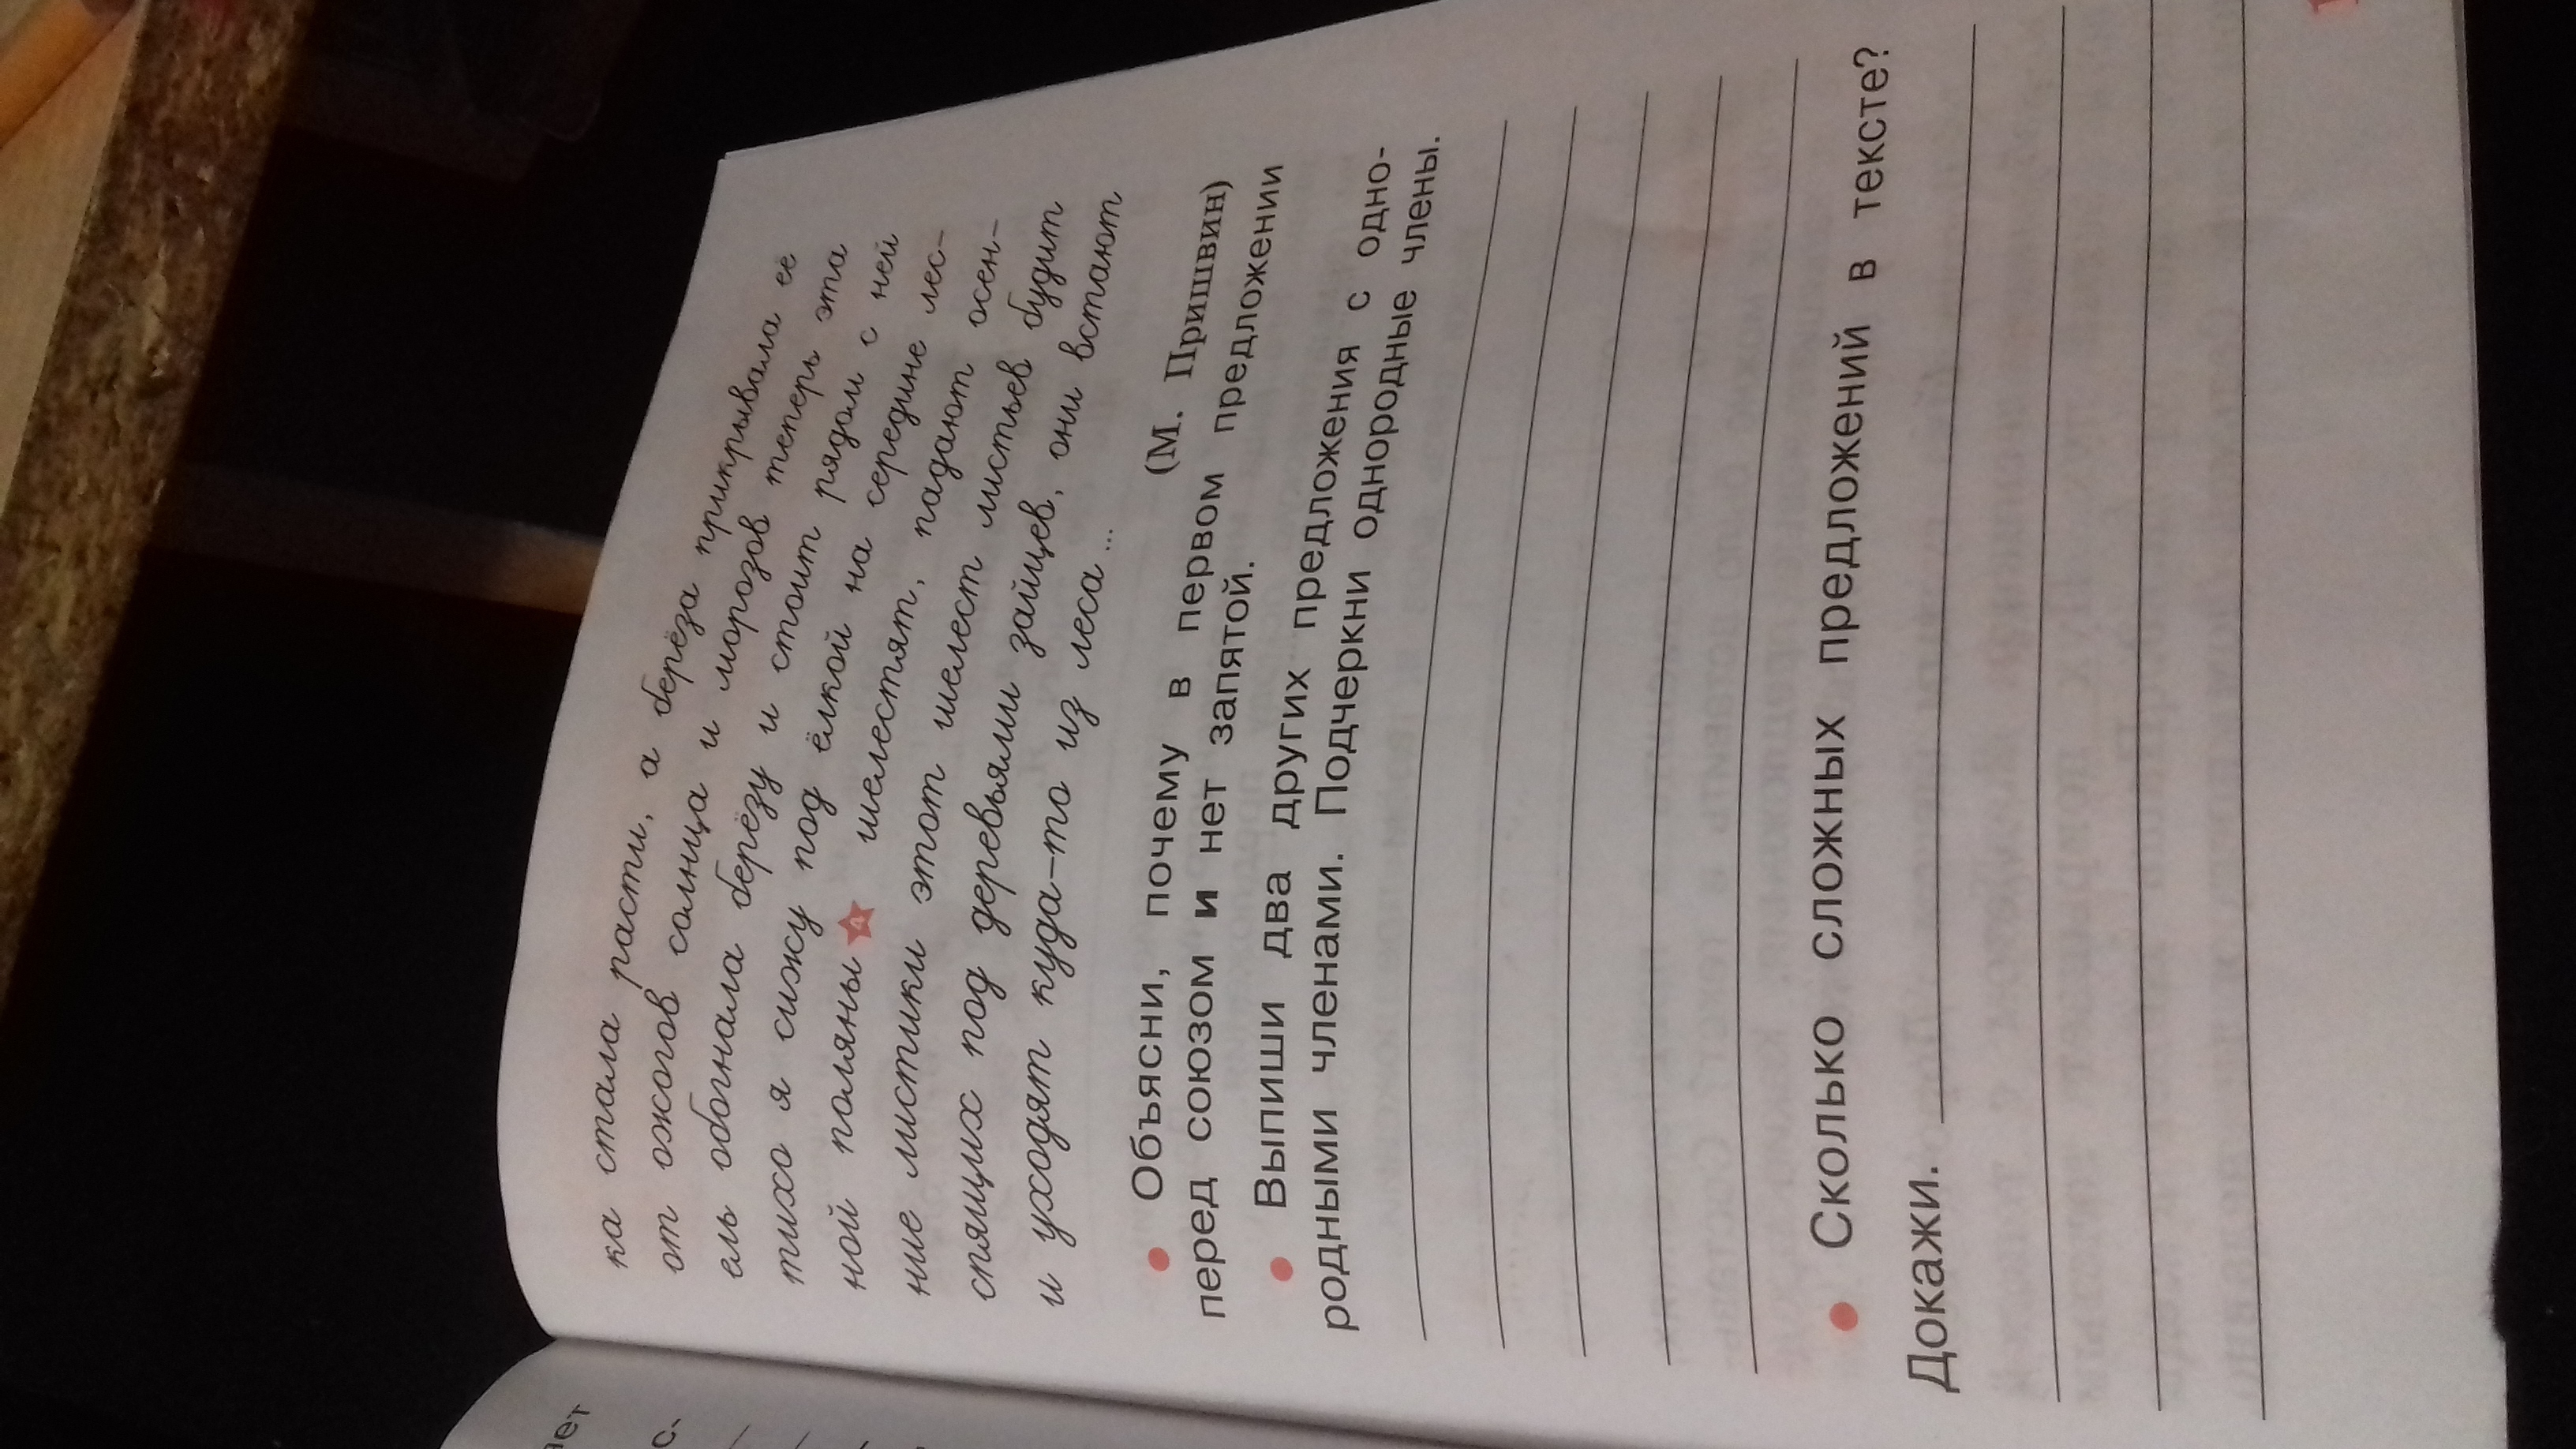 ка стала расти, а берёза прикрывала её
от ожогов солнца и морозов теперь эта
ель обогнала берёзу и стоит рядом с ней
тихо я сижу под ёлкой на середине лес-
ной поляны 4 шелестят, падают осен-
ние листики этот шелест листьев будит
спящих под деревьями зайцев, они встают
и уходят куда-то из леса...
(М. Пришвин)
• Объясни, почему в первом предложении
перед союзом и нет запятой.
• Выпиши два других предложения с одно-
родными членами. Подчеркни однородные члены.
• Сколько сложных предложений в тексте?
Докажи.
с-